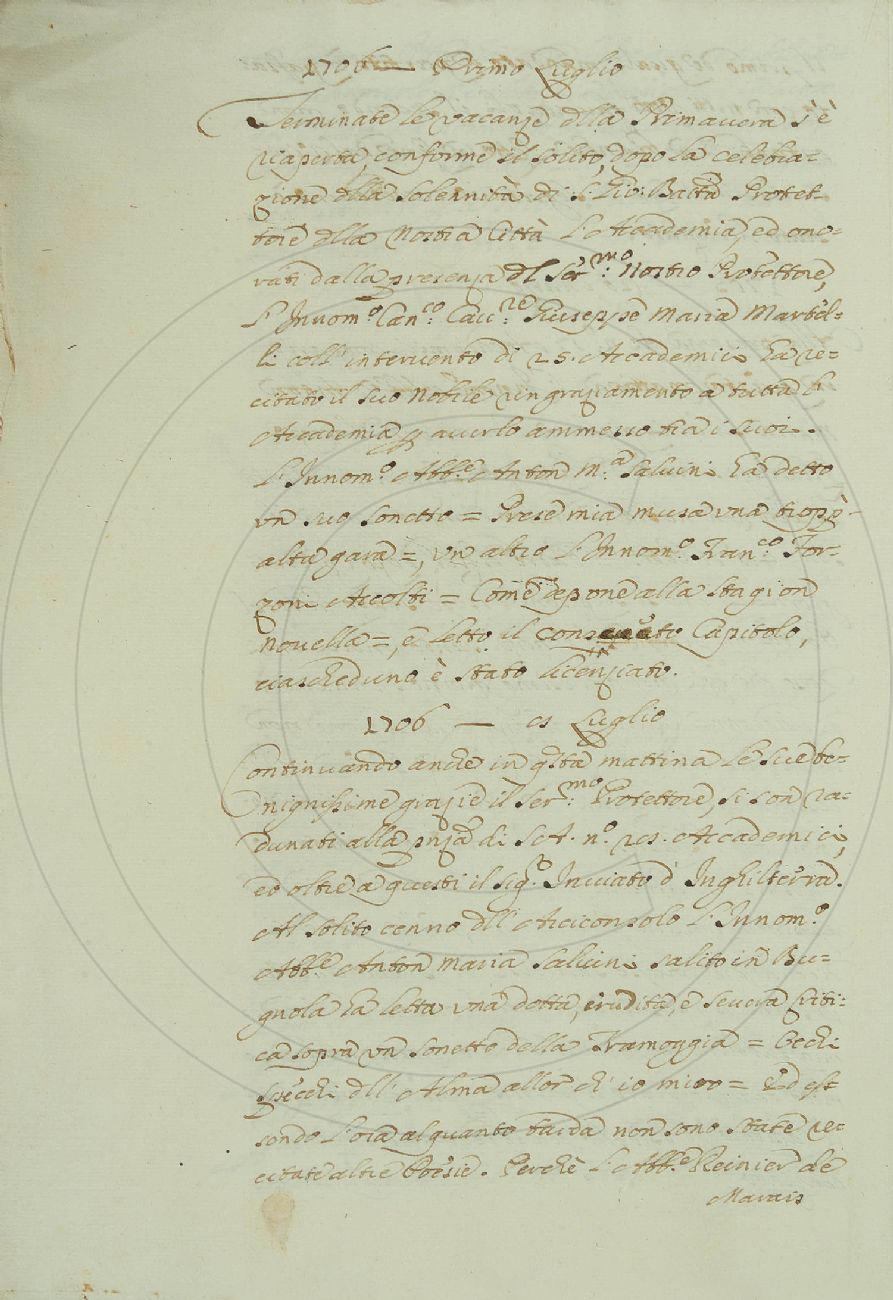 1706 — Primo Luglio
Terminate le vacanze dlla Primavera s'è
riaperta, conforme il solito, dopo la celebra=
zione dlla solennità di S. Gio: Batta Protet=
tore dlla Nostra Città L'Accademia, ed ono=
rati dalla presenza dl Ser.mo Nostro Protettore,
L'Innom.o Can.co Cav.re Giuseppe Maria Martel=
li coll' intervento di 25. Accademici ha re=
citato il suo Nobile ringraziamento a tutta l'
Accademia p averlo ammesso tra i suoi.
L'Innom.o Abb.e Anton M.a Salvini ha detto
un suo sonetto = Prese mia musa una tropp'
alta gara =, un altro L'Innom.o Fran.co For=
zoni Accolti = Come depone alla stagion
novella =, e letto il Capitolo,
ciascheduno è stato licenziato.
1706 — Luglio
Continuando anche in qsta mattina le sue be=
nignissime grazie il Ser.mo Protettore, si son ra=
dunati alla pnza di S. A. n.o Accademici,
ed oltre a questi il sig.r Inviato d'Inghilterra.
Al solito cenno dll' Arciconsolo L'Innom.o
Abb.e Anton Maria Salvini salito in Bu=
gnola ha letta una dotta, erudita, e severa Criti=
ca sopra un sonetto della Tramoggia = Occhi
specchi dll' Alma allor ch' io miro = Ed est
sendo l'ora alquanto tarda non sono state re=
citate altre Poesie. Perchè L'Abb.e Reinier de
Marais